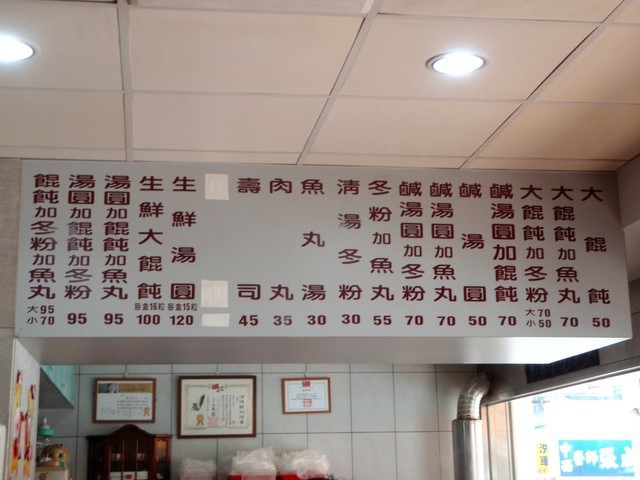 大餛飩 50
大餛飩加魚丸 70
大餛飩加冬粉 大70 小50
鹹湯圓加餛飩 70
鹹湯圓 50
鹹湯圓加魚丸 70
鹹湯圓加冬粉 70
冬粉加魚丸 55
清湯冬粉 30
魚丸湯 30
肉丸 35
壽司 45
生鮮湯圓 每盒15粒 120
生鮮大餛飩 每盒16粒 100
湯圓加餛飩加魚丸 95
湯圓加餛飩加冬粉 95
餛飩加冬粉加魚丸 大95 小70
中西醫師張